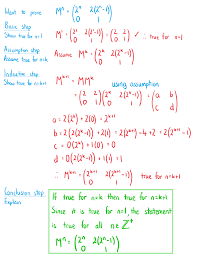 Want to prove Mⁿ = (2ⁿ 2(2ⁿ-1) / 0 1)
Basic step
Show true for n=1 M¹ = (2¹ 2(2¹-1) / 0 1) = (2 2 / 0 1) ✓ ∴ true for n=1
Assumption step
Assume true for n=k Assume Mᵏ = (2ᵏ 2(2ᵏ-1) / 0 1)
Inductive step
Show true for n=k+1 Mᵏ⁺¹ = MMᵏ using assumption
= (2 2 / 0 1)(2ᵏ 2(2ᵏ-1) / 0 1) = (a b / c d)
a = 2(2ᵏ) + 2(0) = 2ᵏ⁺¹
b = 2(2(2ᵏ-1)) + 2(1) = 2(2ᵏ⁺¹) - 4 + 2 = 2(2ᵏ⁺¹ - 1)
c = 0(2ᵏ) + 1(0) = 0
d = 0(2(2ᵏ-1)) + 1(1) = 1
∴ Mᵏ⁺¹ = (2ᵏ⁺¹ 2(2ᵏ⁺¹-1) / 0 1) true for n=k+1
Conclusion step
Explain
If true for n=k then true for n=k+1
Since it true for n=1, the statement
is true for all n∈ℤ⁺
Mⁿ = (2ⁿ 2(2ⁿ-1) / 0 1)